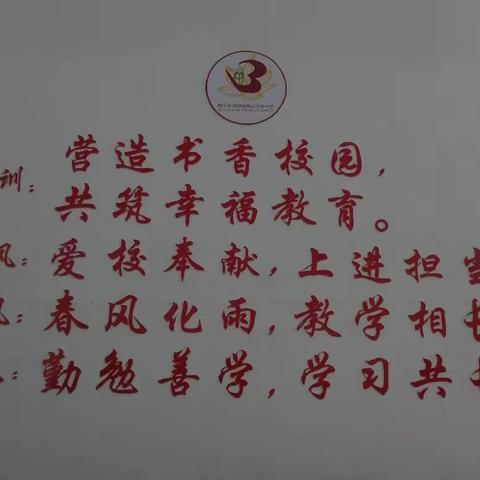 营造书香校园，
训：
共筑幸福教育。
风：爱校奉献，上进担当
风：春风化雨，教学相长
：勤勉善学，学习共